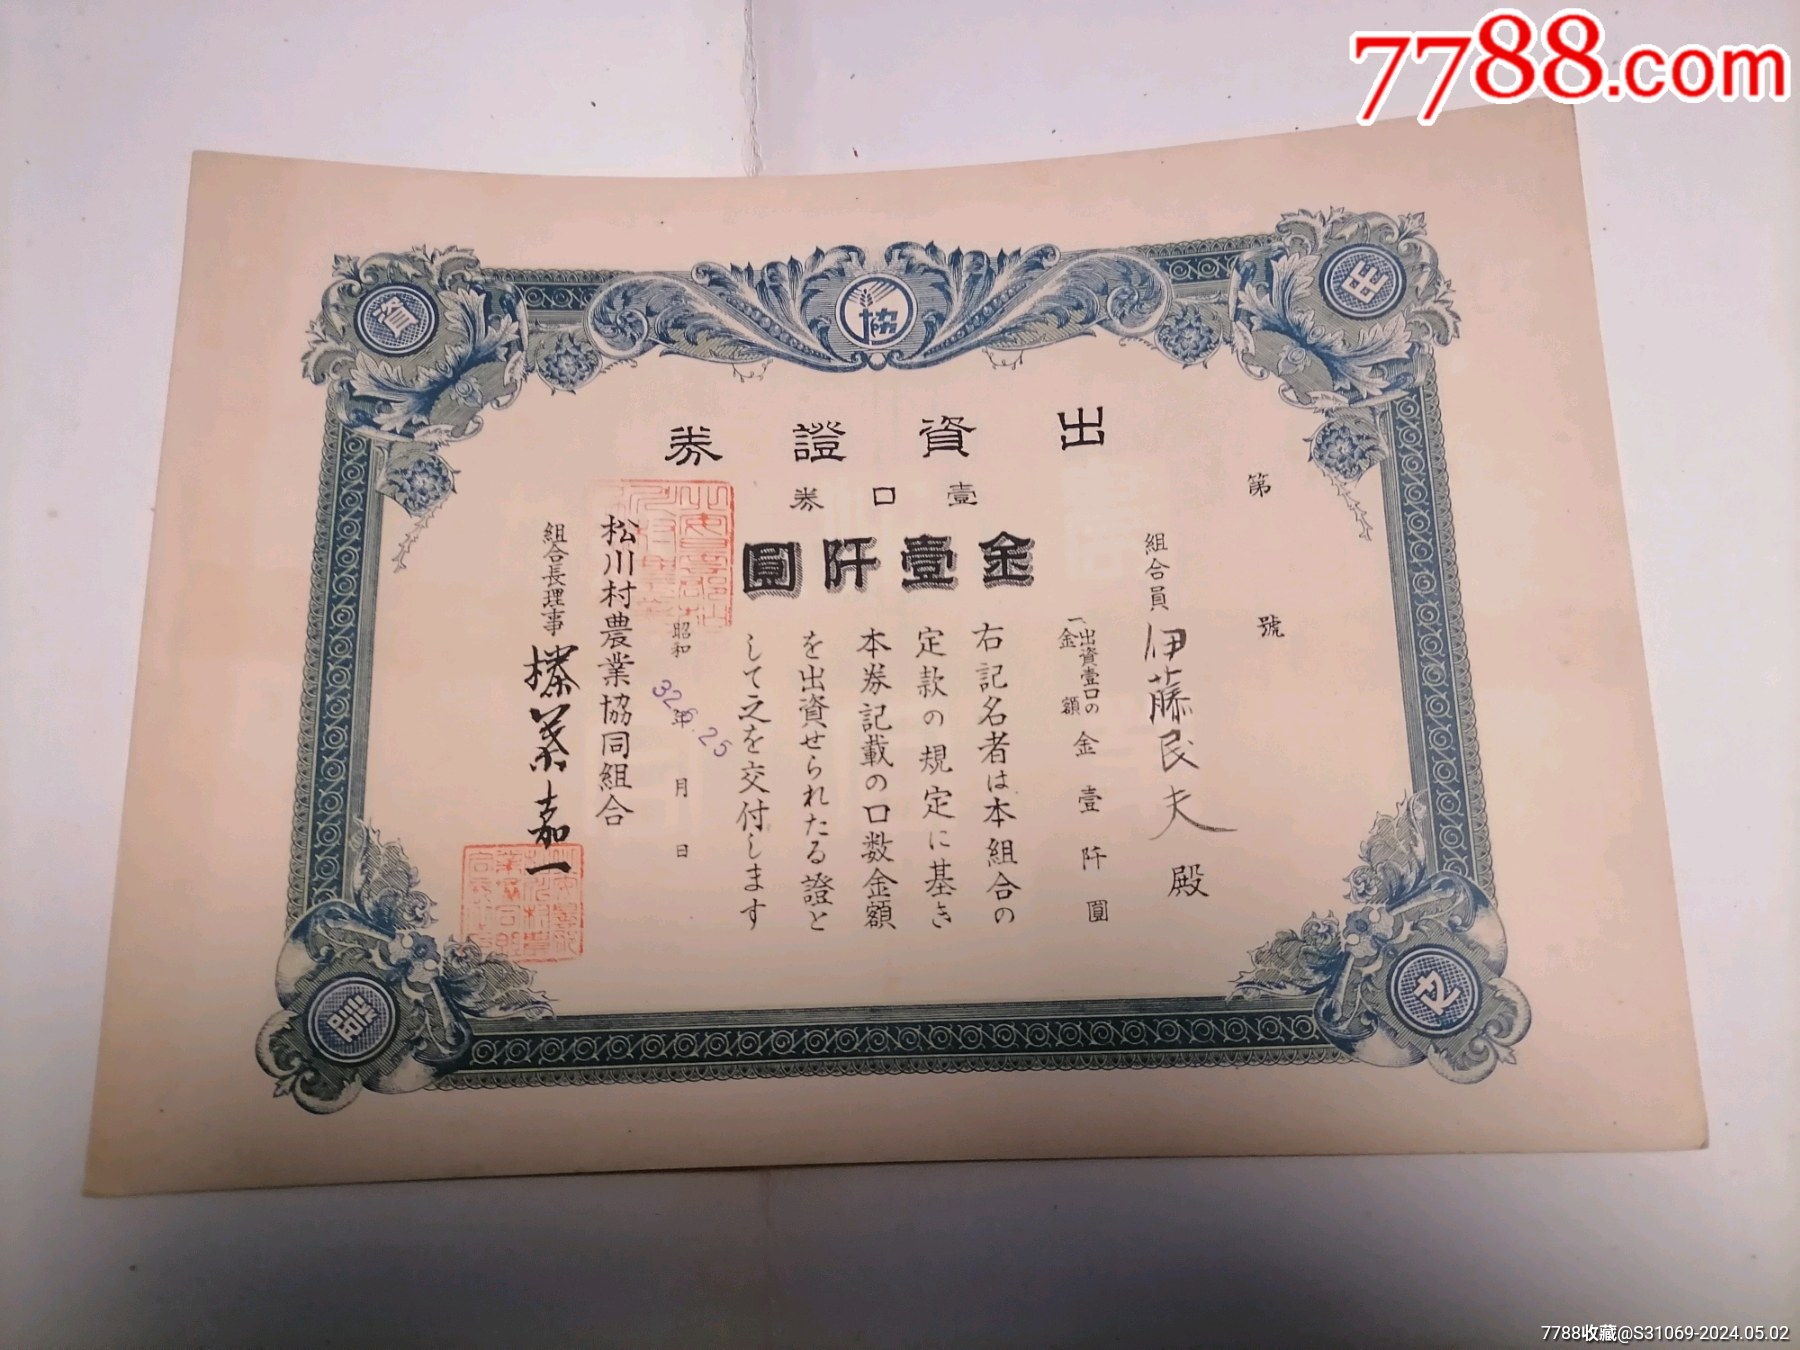 7788.com
出資證券
壹口券
金壹阡圓
第 號
組合員 伊藤民夫 殿
一、出資壹口の金額 金壹阡圓
右記名者は本組合の
定款の規定に基き
本券記載の口数金額
を出資せられたる證と
して之を交付します
昭和 年 月 日
32 6.25
松川村農業協同組合
組合長理事 榛葉嘉一
資
出
證
協
7788收藏@S31069-2024.05.02